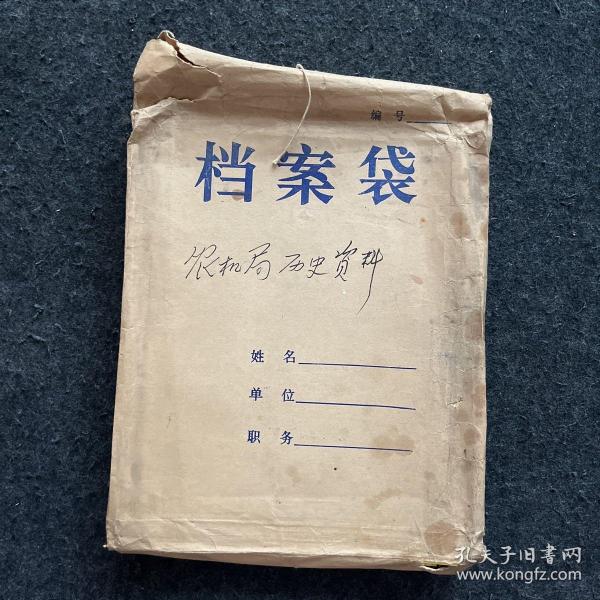 编号
档案袋
农机局历史资料
姓名
单位
职务
孔夫子旧书网
www.kongfz.com